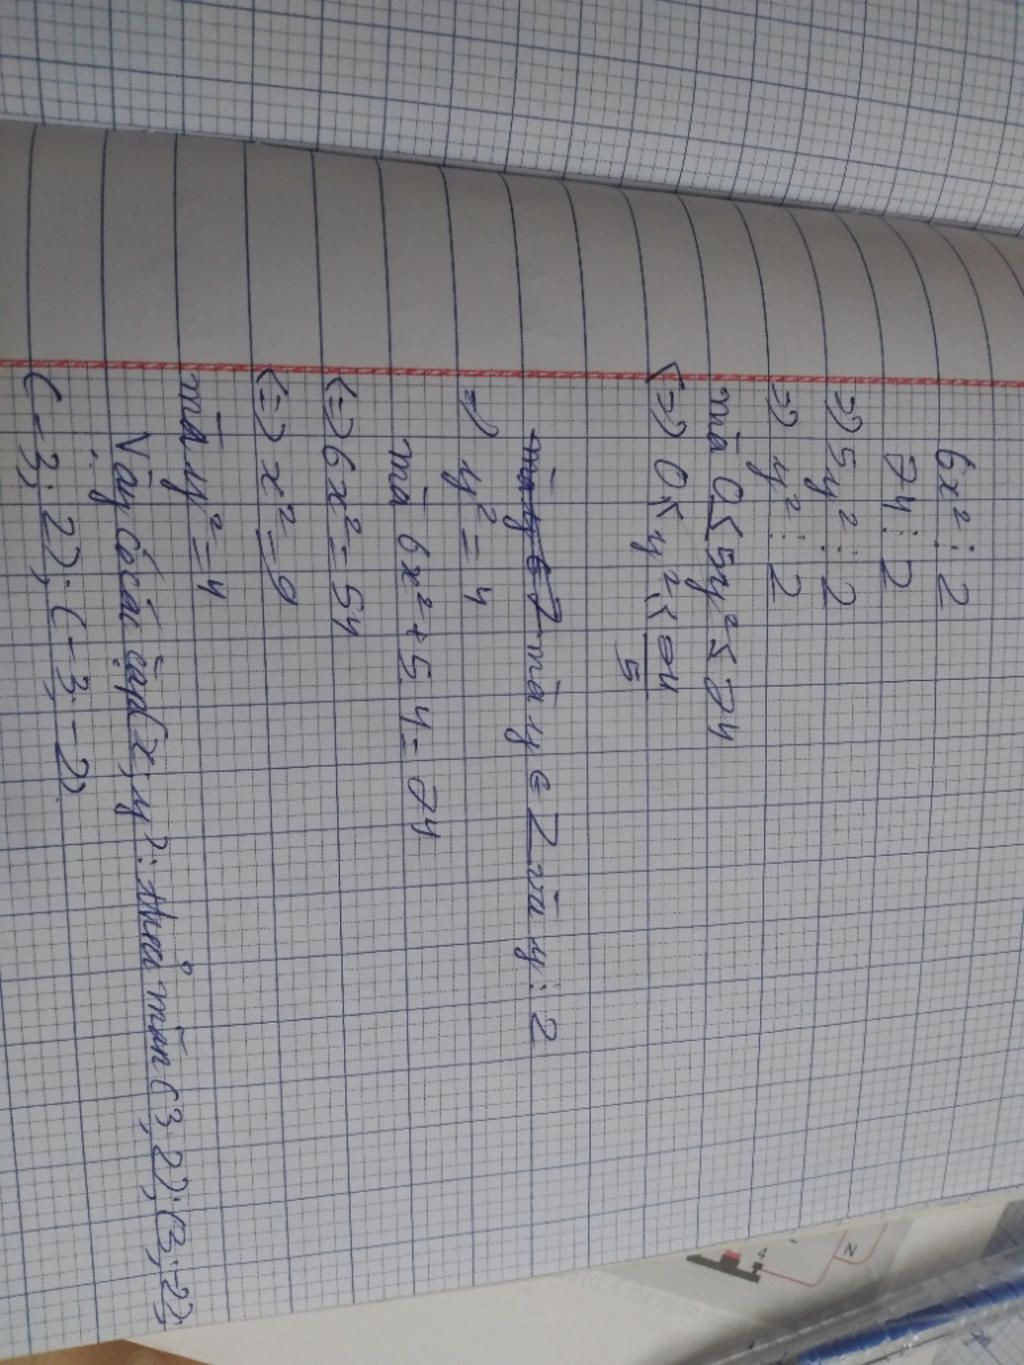 6x² ⋮ 2
74 ⋮ 2
=> 5y² ⋮ 2
=> y² ⋮ 2
mà 0 ≤ 5y² ≤ 74
<=> 0 ≤ y² ≤ 74/5
mà y ∈ Z mà y ∈ Z và y ⋮ 2
=> y² = 4
mà 6x² + 5.4 = 74
<=> 6x² = 54
<=> x² = 9
mà y² = 4
Vậy Có các cặp (x; y): thoả mãn (3; 2); (3; -2);
(-3; 2); (-3; -2)
4
N